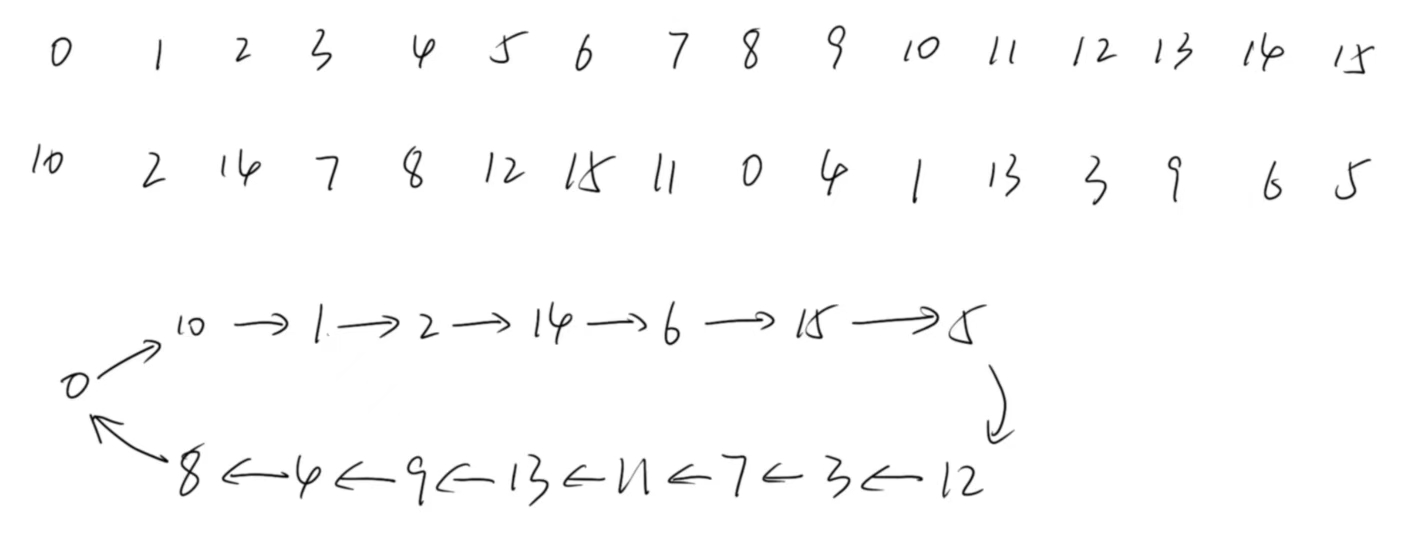 0 1 2 3 4 5 6 7 8 9 10 11 12 13 14 15
10 2 14 7 8 12 15 11 0 4 1 13 3 9 6 5
10 → 1 → 2 → 14 → 6 → 15 → 5
0
8 ← 4 ← 9 ← 13 ← 11 ← 7 ← 3 ← 12